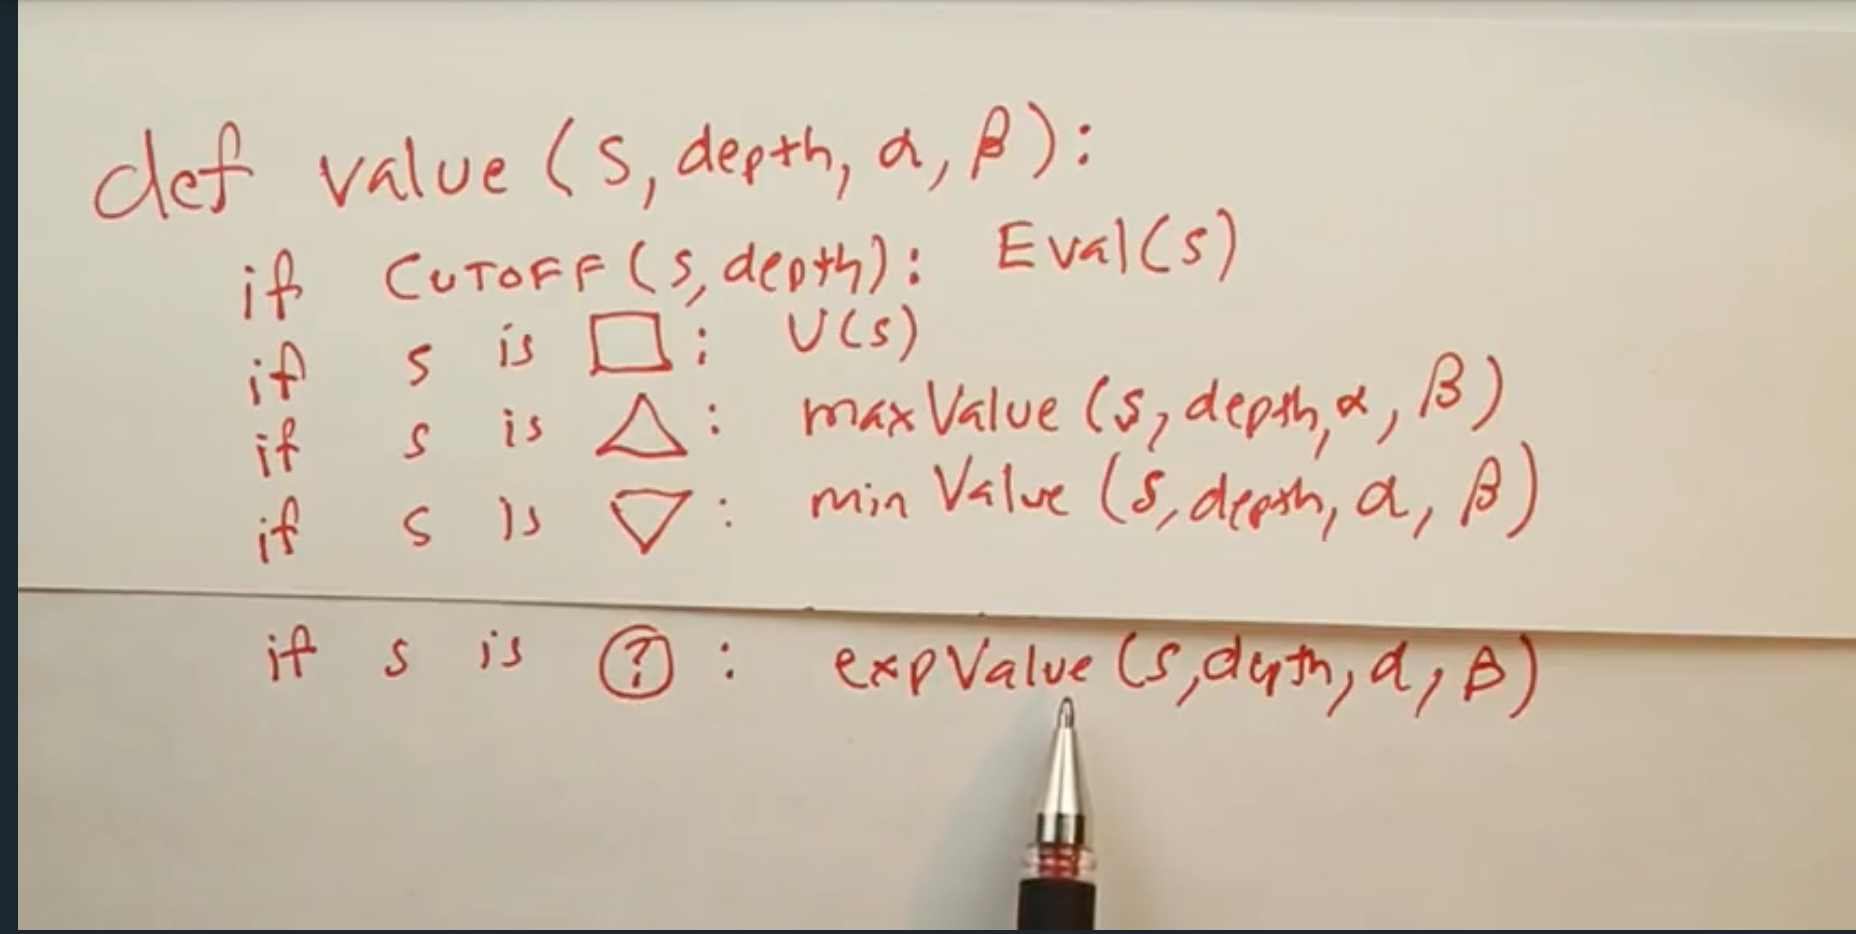 def value (s, depth, α, β):
if CUTOFF (s, depth): Eval(s)
if s is □: U(s)
if s is △: maxValue (s, depth, α, β)
if s is ▽: minValue (s, depth, α, β)
if s is ?: expValue (s, depth, α, β)